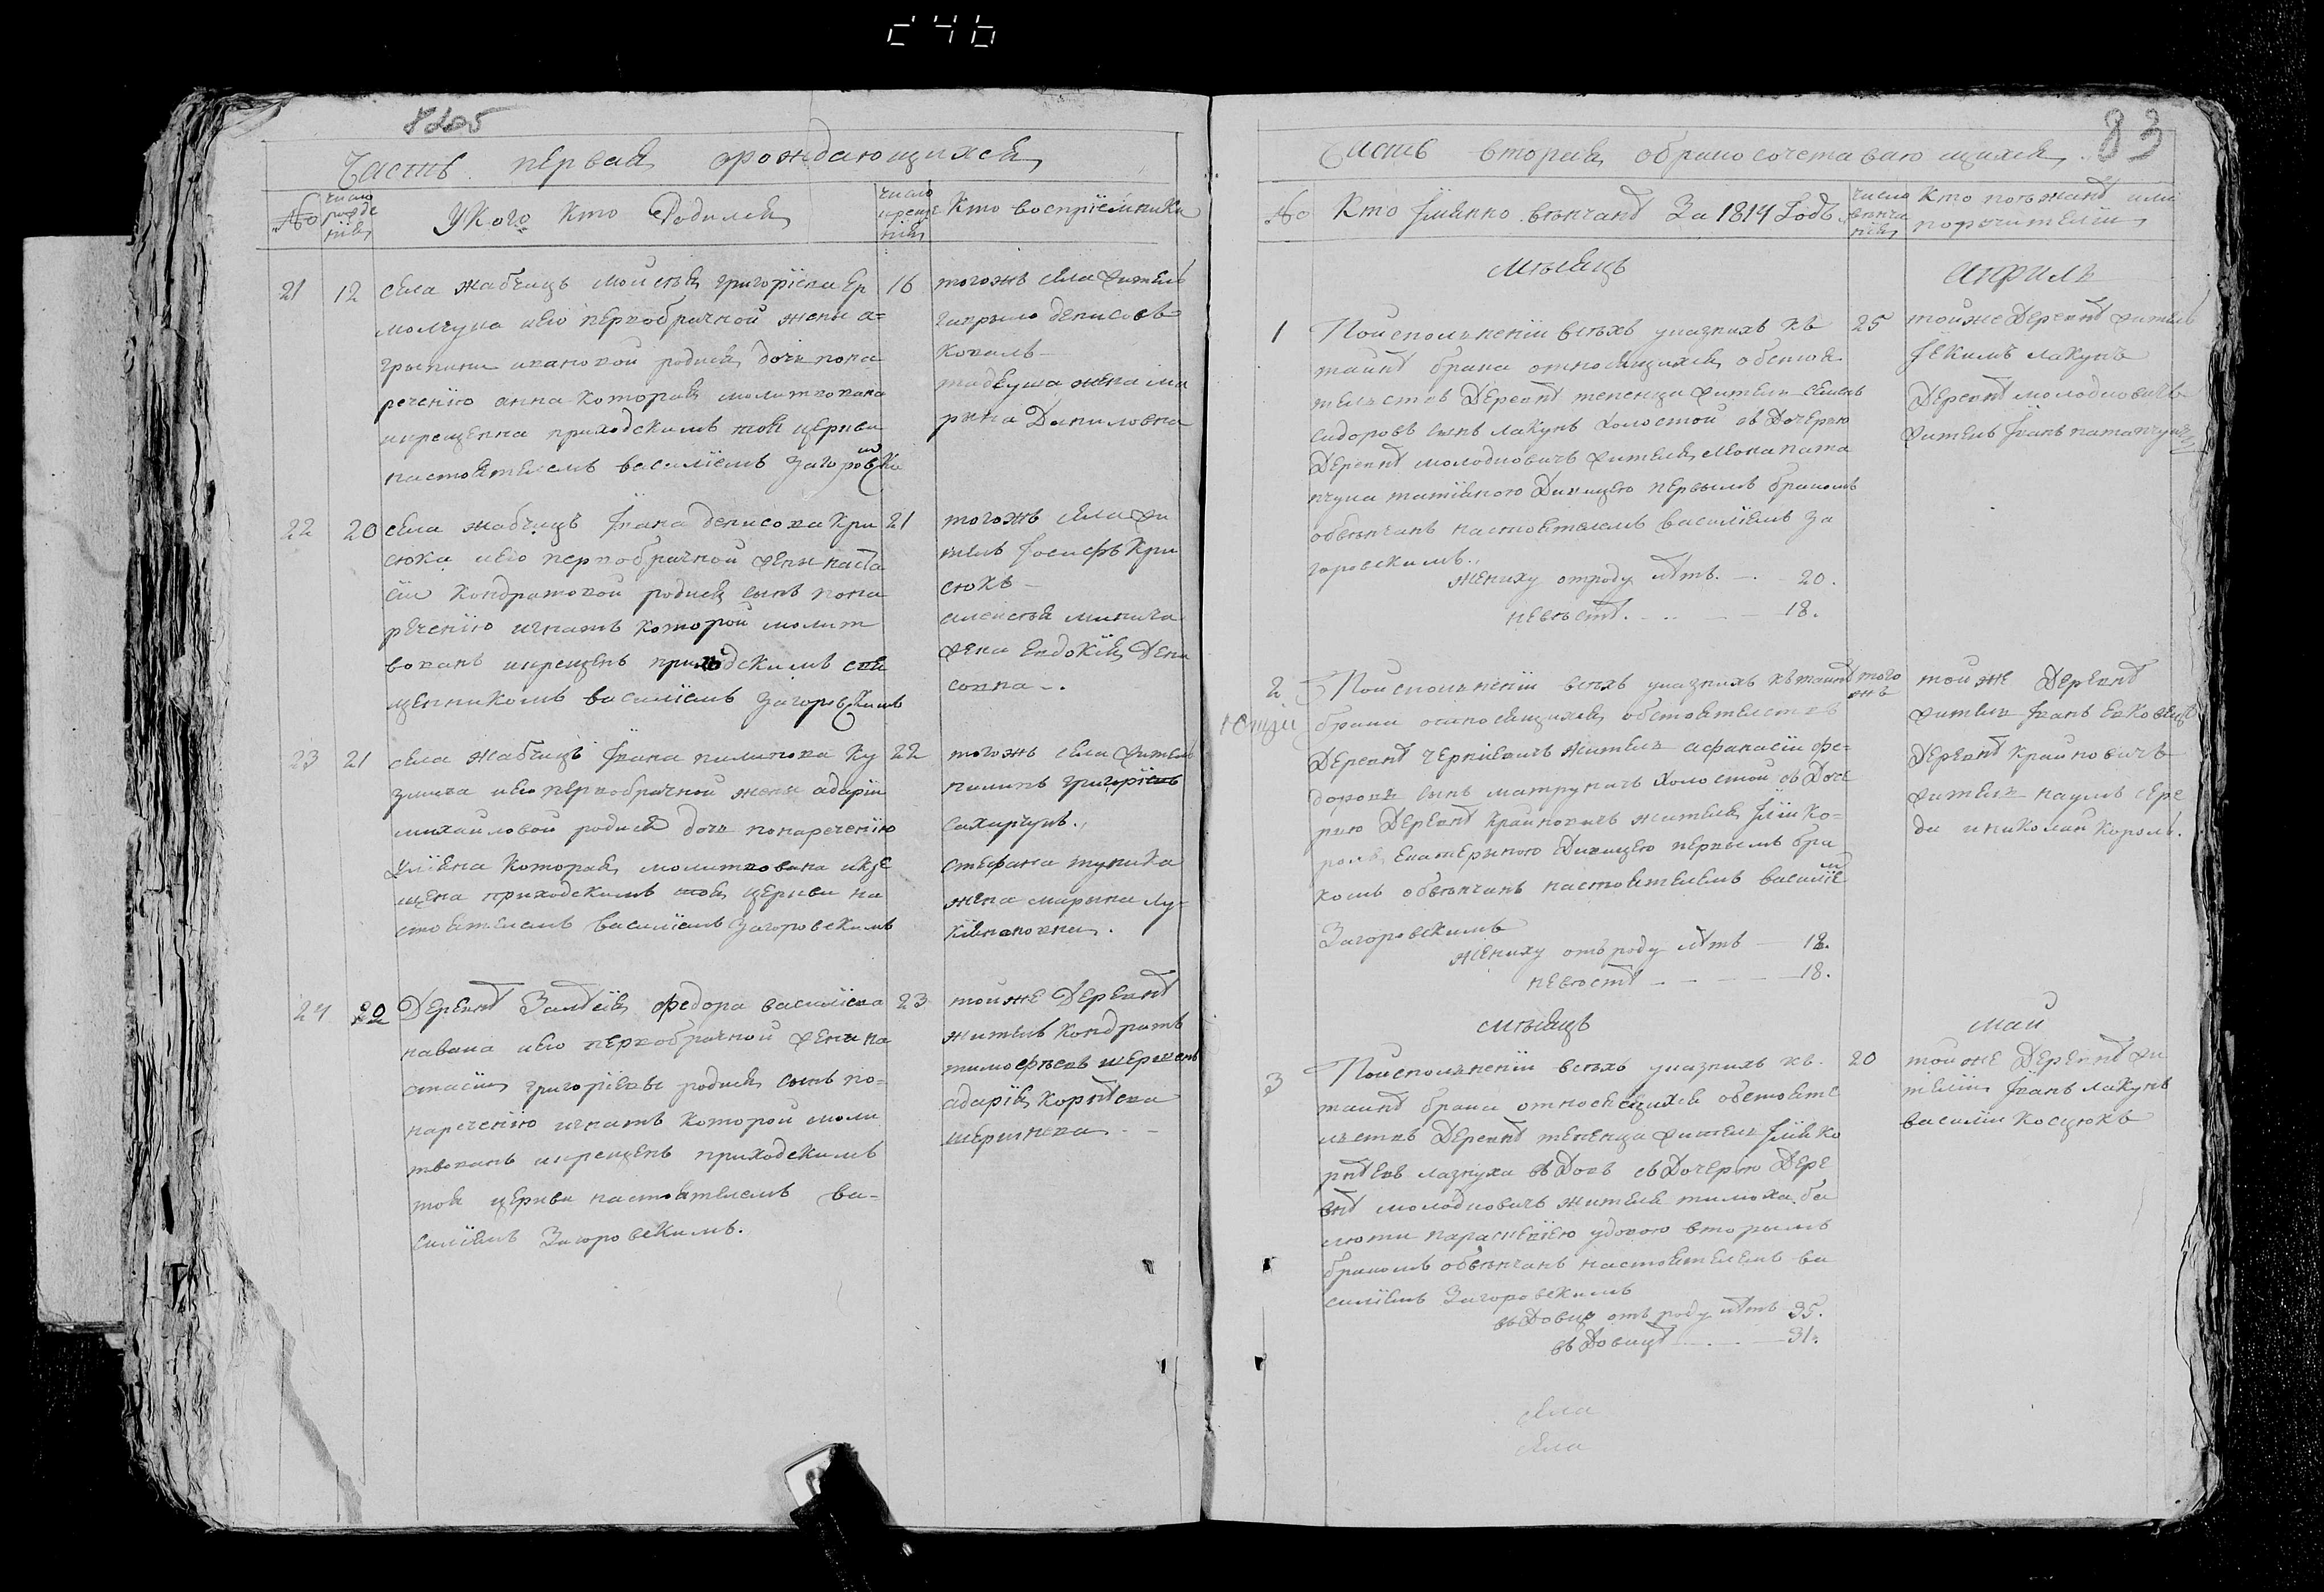 246
82об
Часть первая орождающихся
№ число рожденія Укого Кто Родился число крещенія Кто воспріемники
21 12 села жабчицъ моисея григоріева ер
молчука иего первобрачной жены а-
грыпины ивановой родися дочь пона
реченію анна которая молитвована
икрещенна приходскимъ той церкви
настоятелемъ василіемъ Загоровским
16 тогожъ села житель
гаврыло денисовъ
коваль
тадеуша жена ма
рына Даниловна
22 20 села жабчицъ Івана денисова Кри
сюка иего первобрачной жены наста
сіи Кондратовой родися сынъ пона
реченію игнатъ которой молит
вованъ икрещенъ приходскимъ свя
щенникомъ василіемъ Загоровскимъ
21 тогожъ села жи
тель Іосифъ Кри
сюкъ
алексея минича
жена евдокія Дени
совна
23 21 села жабчицъ Івана пилипова Ку
змича иего первобрачной жены адаріи
михайловой родися дочь понареченію
уліяна которая молитвована икре
щена приходскимъ той церкви на
стоятелемъ василіемъ Загоровскимъ
22 тогожъ села житель
пилипъ григоріевъ
сахарчукъ.
стефана тупика
жена марына лу-
кіяновна.
24 22 Деревнѣ Залѣсія федора василіева
иего первобрачной жены на
стасіи григоріевы родися сынъ по-
нареченію игнатъ которой моли
твованъ икрещенъ приходскимъ
той церкви настоятелемъ ва-
силіемъ Загоровскимъ.
23 тойже Деревнѣ
житель кондратъ
тимофѣевъ шершень
адарія корнѣева
шершнева
83
Часть вторая обракосочетавающихся.
№ Кто Імянно вѣнчанъ За 1814 Годъ число вѣнчанія Кто поѣзжанѣ или
поручители
Мѣсяцъ априль
1 Поисполненіи всѣхъ указныхъ къ
таинѣ брака относящихся обстоя
тельствъ Деревнѣ тепенца житель семенъ
сидоровъ сынъ лакунъ холостой зъ Дочерью
Деревнѣ молодковичъ жителя
татіяною Дивицею первымъ бракомъ
обвѣнчанъ настоятелемъ василіемъ за
горовскимъ.
жениху отроду лѣтъ. 20.
невѣстѣ. 18.
25 тойже Деревнѣ житель
Іекимъ лакунъ
Деревнѣ молодковичъ
житель Іванъ
2 Поисполненіи всѣхъ указныхъ ктаинѣ
брака относящихся обстоятельствъ
Деревнѣ черніевичъ житель афанасій фе-
доровъ сынъ матруничъ холостой зъ Доче
рию Деревнѣ крайновичъ жителя Іліи ко-
роля екатерыною Дивицею первымъ бра
комъ обвѣнчанъ настоятелемъ василіем
Загоровскимъ
жениху отъроду лѣтъ 18.
невѣстѣ 18.
того жъ
той же Деревнѣ
житель Іванъ
Деревнѣ крайновичъ
житель наумъ сере
да иниколай король.
мѣсяцъ май
3 Поисполненіи всѣхъ указныхъ къ
таинѣ брака относящихся обстояте
льствъ Деревнѣ тепенца житель Ілія ко
рнѣевъ лазнуха вДовъ съДочерію Дере
внѣ молодковичъ жителя тимоха ба
люти параскевіею удовою вторымъ
бракомъ обвѣнчанъ настоятелемъ ва
силіемъ Загоровскимъ
въДовцу отъ роду лѣтъ 35.
въДовицѣ 31.
20 тойже Деревнѣ жи
телии Іванъ лакунъ
василій косцюкъ
села
села